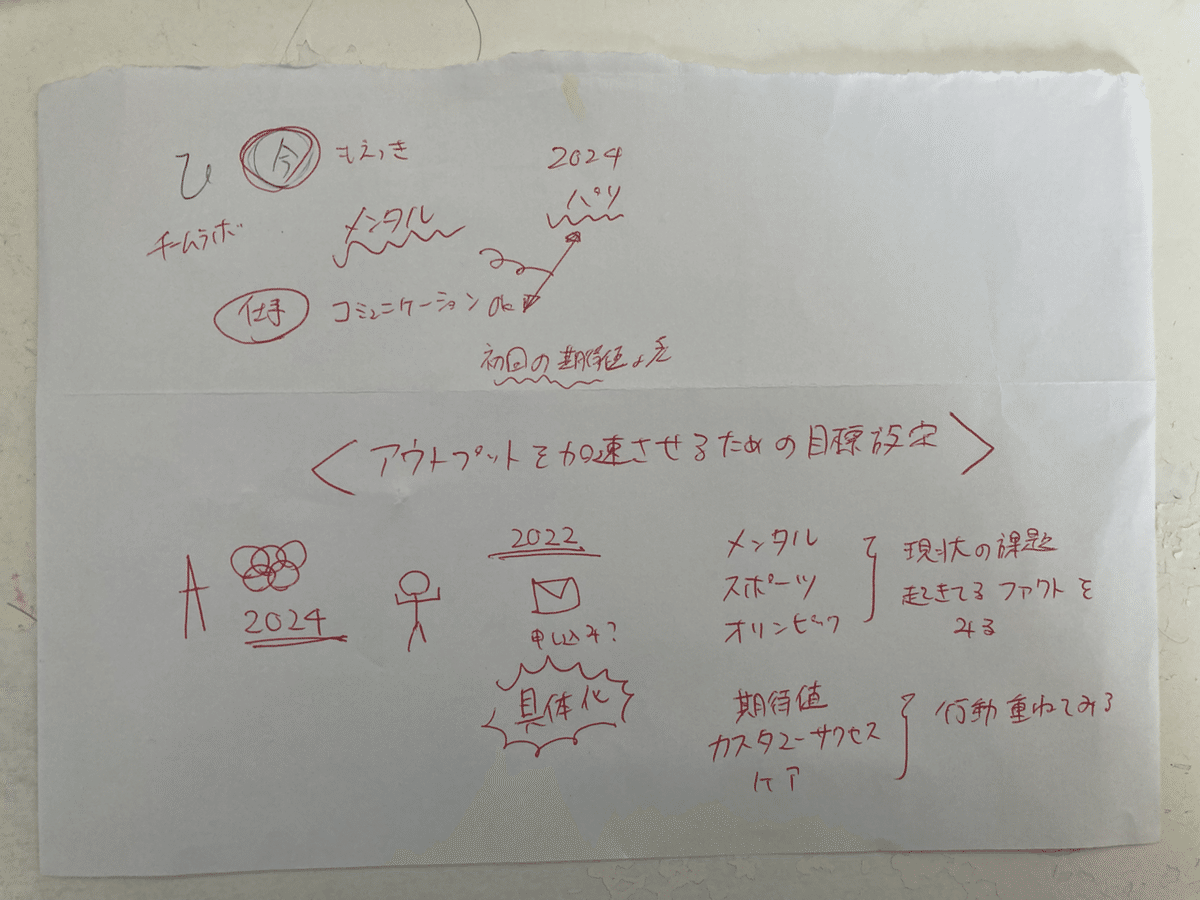 ひ 今 もえつき
2024
パリ
チームラボ
メンタル
仕事 コミュニケーション
初回の期待値
<アウトプットを加速させるための目標設定>
2024
2022
申し込み?
具体化
メンタル
スポーツ
オリンピック
現状の課題
起きてるファクトを
みる
期待値
カスタマーサクセス
ケア
行動重ねてみる